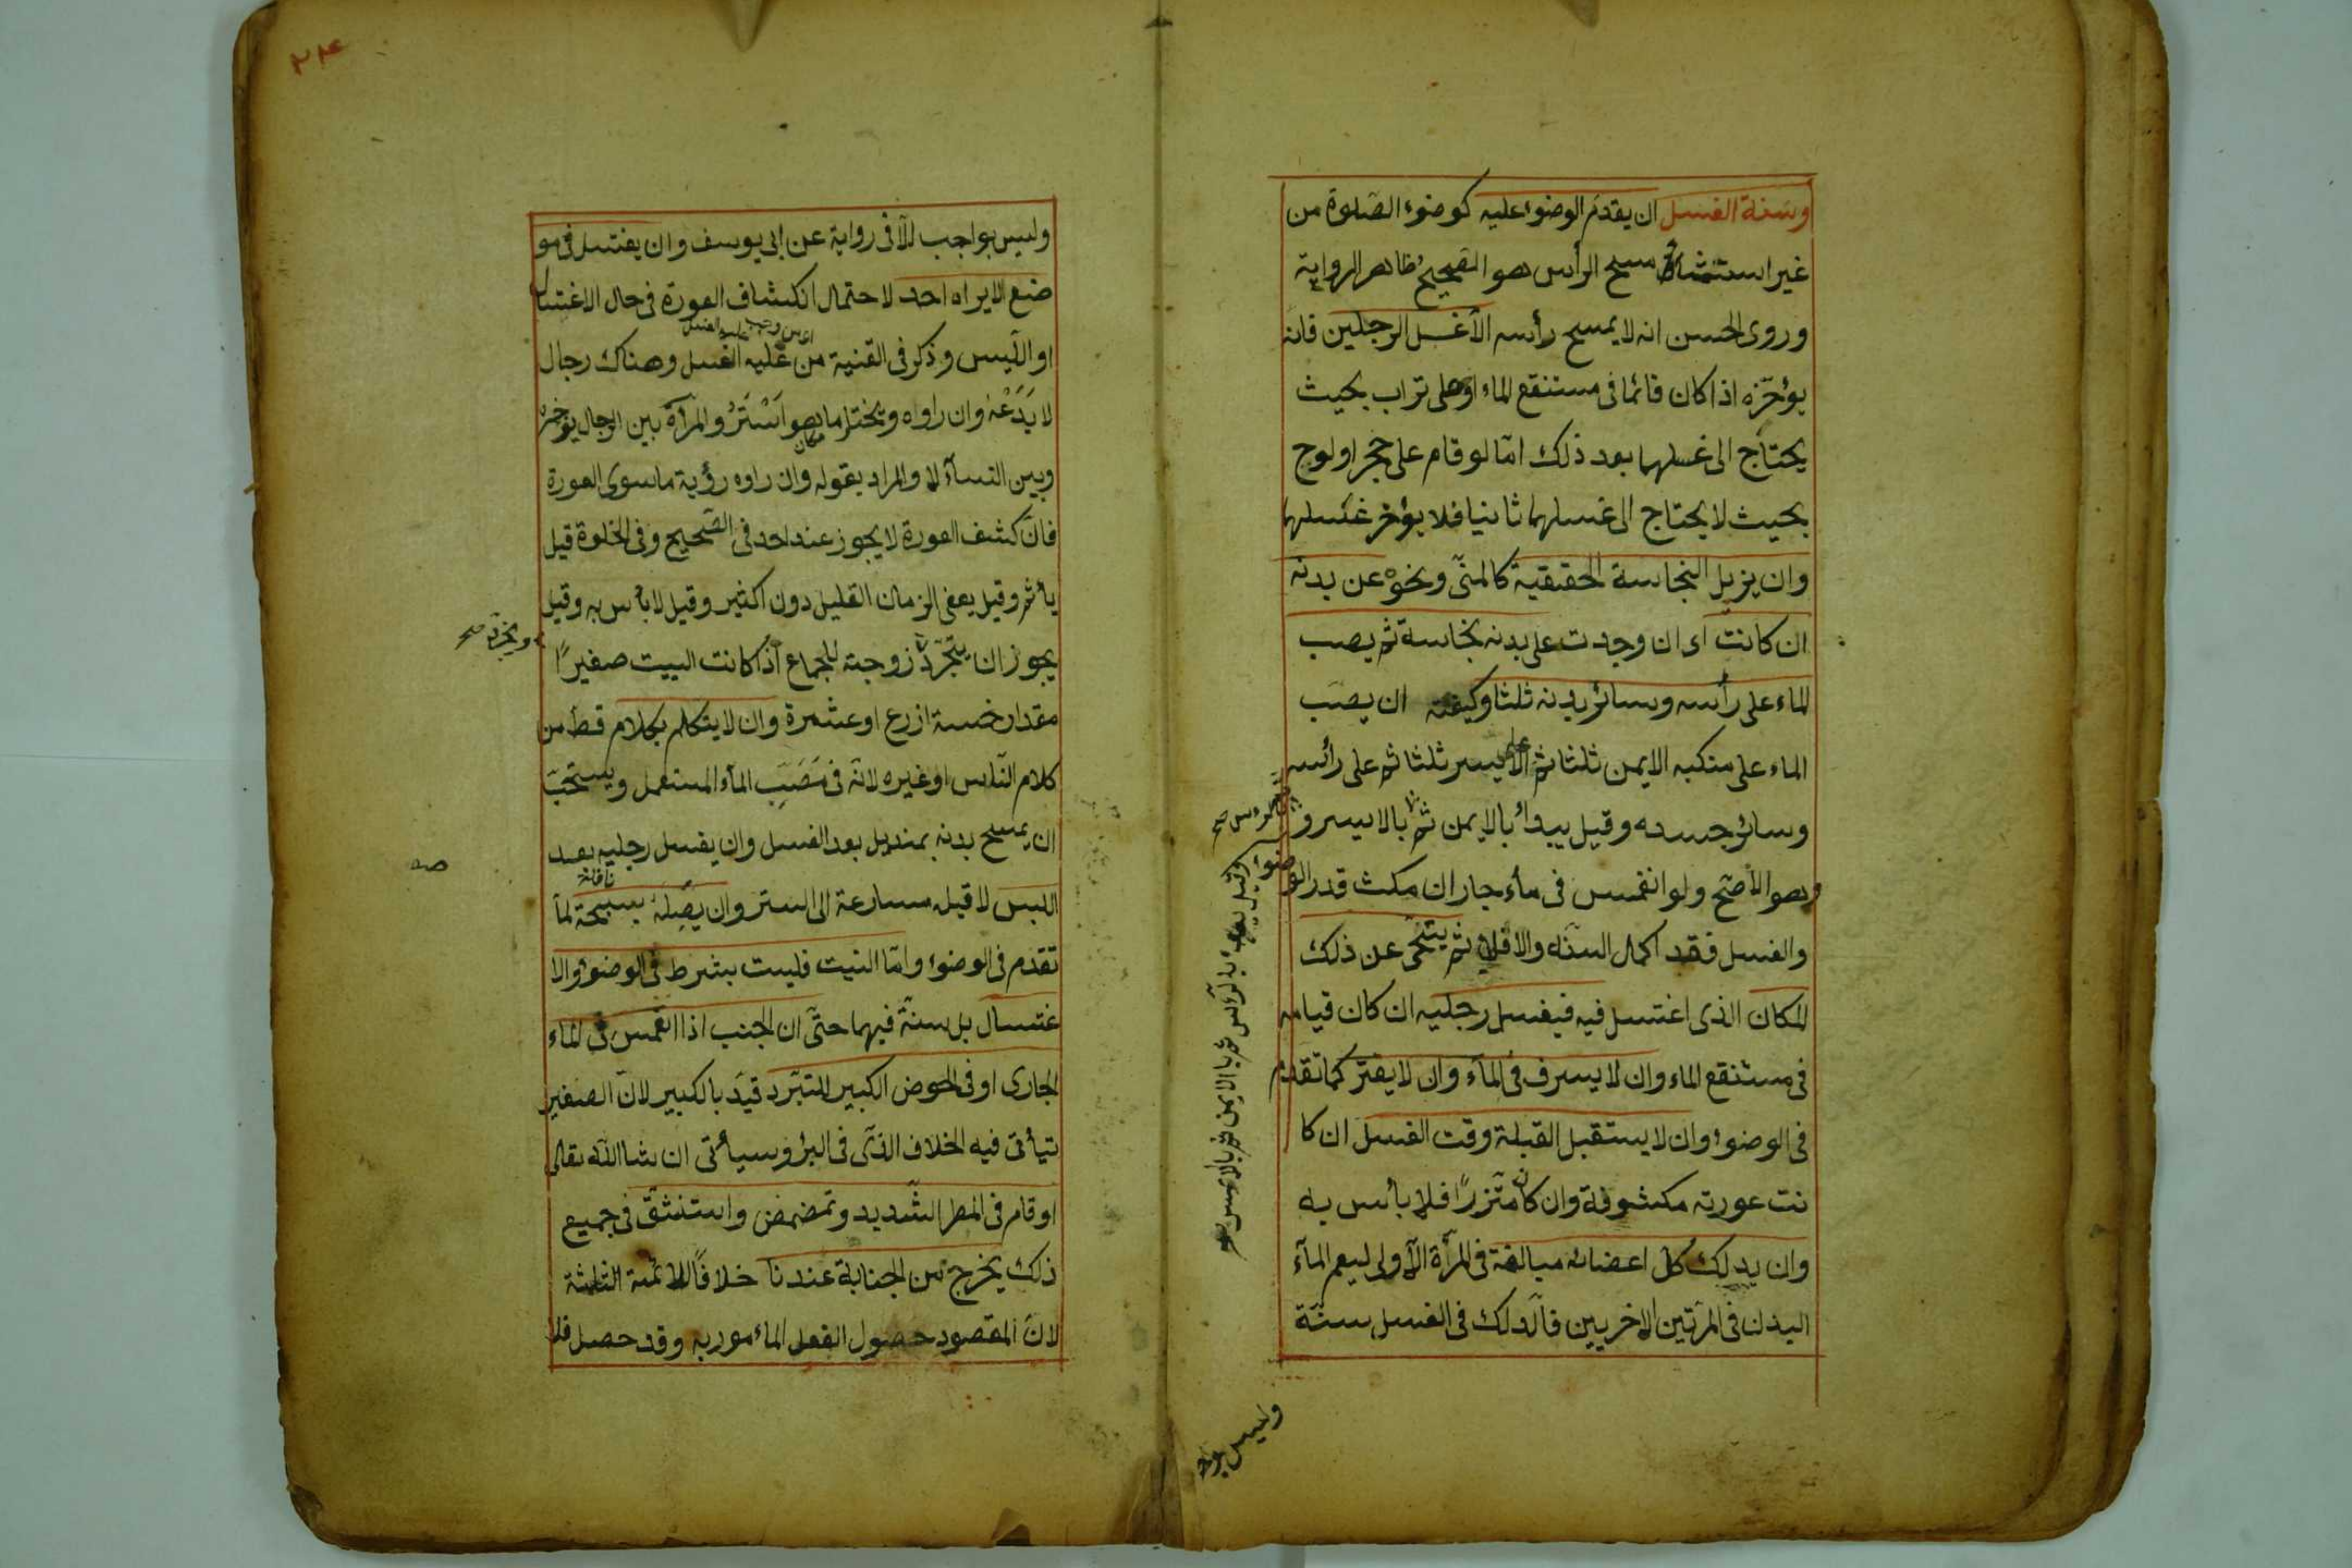 وسنة الغسل ان يقدم الوضوء عليه كوضوء الصلوة من
غير استثناء مسح الرأس هو الصحيح ظاهر الرواية
وروى الحسن انه لا يمسح رأسه الا غسل الرجلين فانه
يؤخره اذا كان قائما في مستنقع الماء او على تراب بحيث
يحتاج الى غسلهما بعد ذلك امّا لو قام على حجر او لوح
بحيث لا يحتاج الى غسلهما ثانيا فلا يؤخر غسلهما
وان يزيل النجاسة الحقيقية كالمنيّ ونحوه عن بدنه
ان كانت اى ان وجدت على بدنه نجاسة ثم يصب
الماء على رأسه وسائر بدنه ثلثا وكيفيته ان يصبّ
الماء على منكبه الايمن ثلثا ثم على الايسر ثلثا ثم على رأسه
وسائر جسده وقيل يبدأ بالايمن ثم بالايسر و
وهو الاصحّ ولو انغمس في ماء جار ان مكث قدر الوضوء
والغسل فقد اكمل السنّه والا فلا ثم يتنحى عن ذلك
المكان الذى اغتسل فيه فيغسل رجليه ان كان قيامه
في مستنقع الماء وان لا يسرف في الماء وان لا يقتر كما تقدم
في الوضوء وان لا يستقبل القبلة وقت الغسل ان كا
نت عورته مكشوفة وان كان متزرًا فلا بأس به
وان يدلك كلّ اعضائه مبالغة في المرّة الاولى ليعم الماء
البدن في المرّتين الاخريين فالدلك في الغسل سنّة
وقيل يبدأ بالرأس ثم بالايمن ثم بالايسر صح
وليس بوا
٢٤
وليس بواجب الّا في رواية عن ابي يوسف وان يغتسل في مو
ضع لا يراه احد لا حتمال انكشاف العورة في حال الاغتسال
او اللّبس وذكر في القنية من عليه الغسل وهناك رجال
لا يَدَعْهُ وان راوه ويختار ما هو اَسْتَرُ والمرأة بين الرجال يؤخره
وبين النسآء لا والمراد بقوله وان راوه رؤية ما سوى العورة
فانّ كشف العورة لا يجوز عند احد في الصّحيح وفي الخلوة قيل
يأثم وقيل يعفى الزمان القليل دون اكثير وقيل لا بأس به وقيل
يجوز ان يتجرّد زوجته للجماع اذا كانت البيت صغيرًا
مقدار خمسة ازرع او عشرة وان لا يتكلم بكلام قط من
كلام النّاس او غيره لانّه في مَصَبِّ الماء المستعمل ويستحبّ
ان يمسح بدنه بمنديل بعد الغسل وان يغسل رجليه بعد
اللبس لا قبله مسارعة الى الستر وان يصلى سبحة لما
نافلة
تقدم في الوضوء وامّا النيت فليست بشرط في الوضوء والا
غتسال بل سنة فيهما حتّى ان الجنب اذا انغمس في الماء
الجارى او في الحوض الكبير للتبّرد قيّد بالكبير لانّ الصغير
تيأتى فيه الخلاف الذى في البئر وسيأتى ان شا الله تعالى
او قام في المطر الشّديد وتمضمض واستنشق في جميع
ذلك يخرج من الجنابة عندنا خلافًا للائمة الثلثة
لانّ المقصود حصول الفعل الماءمور به وقد حصل فلا